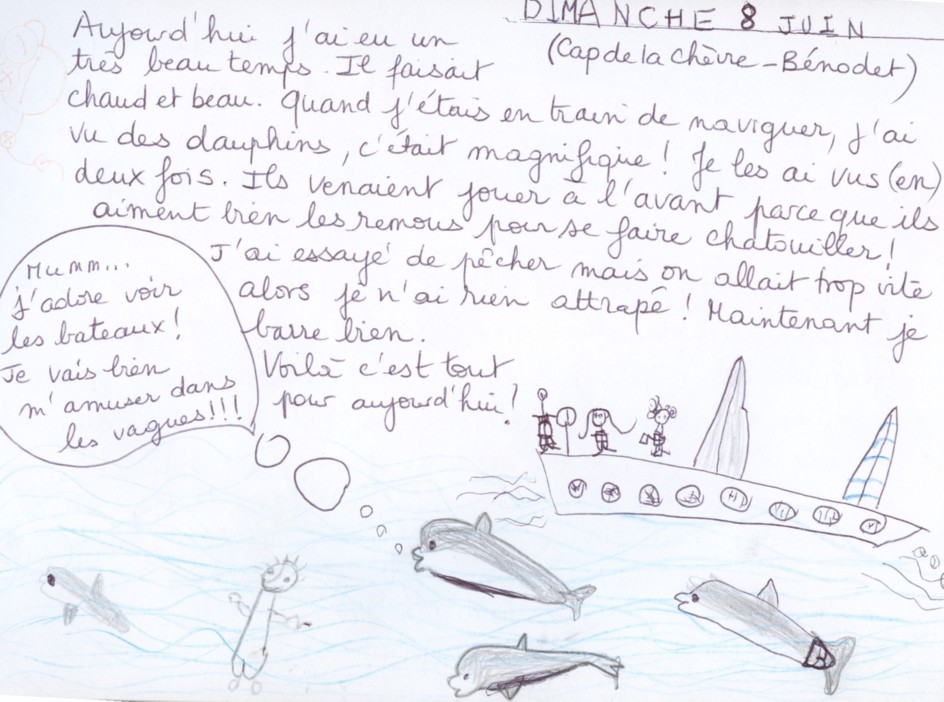 DIMANCHE 8 JUIN
(Cap de la chèvre - Bénodet)
Aujourd'hui j'ai eu un
très beau temps. Il faisait
chaud et beau. Quand j'étais en train de naviguer, j'ai
vu des dauphins, c'était magnifique ! Je les ai vus (en)
deux fois. Ils venaient jouer à l'avant parce que ils
aiment bien les remous pour se faire chatouiller !
J'ai essayé de pêcher mais on allait trop vite
alors je n'ai rien attrapé ! Maintenant je
barre bien.
Voilà c'est tout
pour aujourd'hui !
Mumm...
j'adore voir
les bateaux !
Je vais bien
m'amuser dans
les vagues !!!